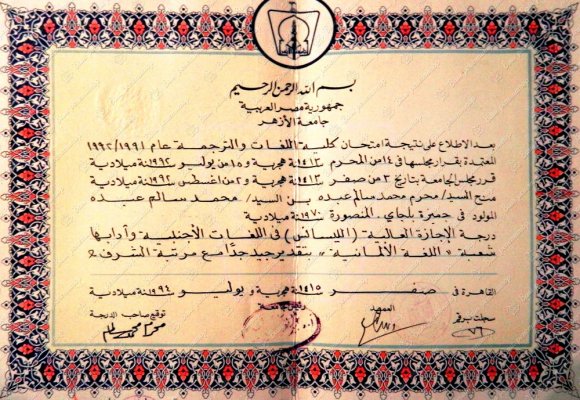 بسم الله الرحمن الرحيم
جمهورية مصر العربية
جامعة الأزهر
بعد الاطلاع على نتيجة امتحان كلية اللغات والترجمة عام ١٩٩٢/١٩٩١
المعتمدة بقرار مجلسها في ١٤ من المحرم ١٤١٣ سنة هجرية و ١٥ من يوليو ١٩٩٢ سنة ميلادية
قرر مجلس الجامعة بتاريخ ٣ من صفر ١٤١٣ سنة هجرية و ٢ من أغسطس ١٩٩٢ سنة ميلادية
منح السيد/ محرم محمد سالم عبده بن السيد/ محمد سالم عبده
المولود في المنصورة سنة ١٩٧٠ ميلادية
درجة الإجازة العالية (الليسانس) في اللغات الأجنبية وآدابها
شعبة " اللغة الألمانية " بتقدير جيد جدا مع مرتبة الشرف
القاهرة في صفر ١٤١٥ سنة هجرية و يوليو ١٩٩٤ سنة ميلادية
توقيع صاحب الدرجة
العميد
سجلت برقم